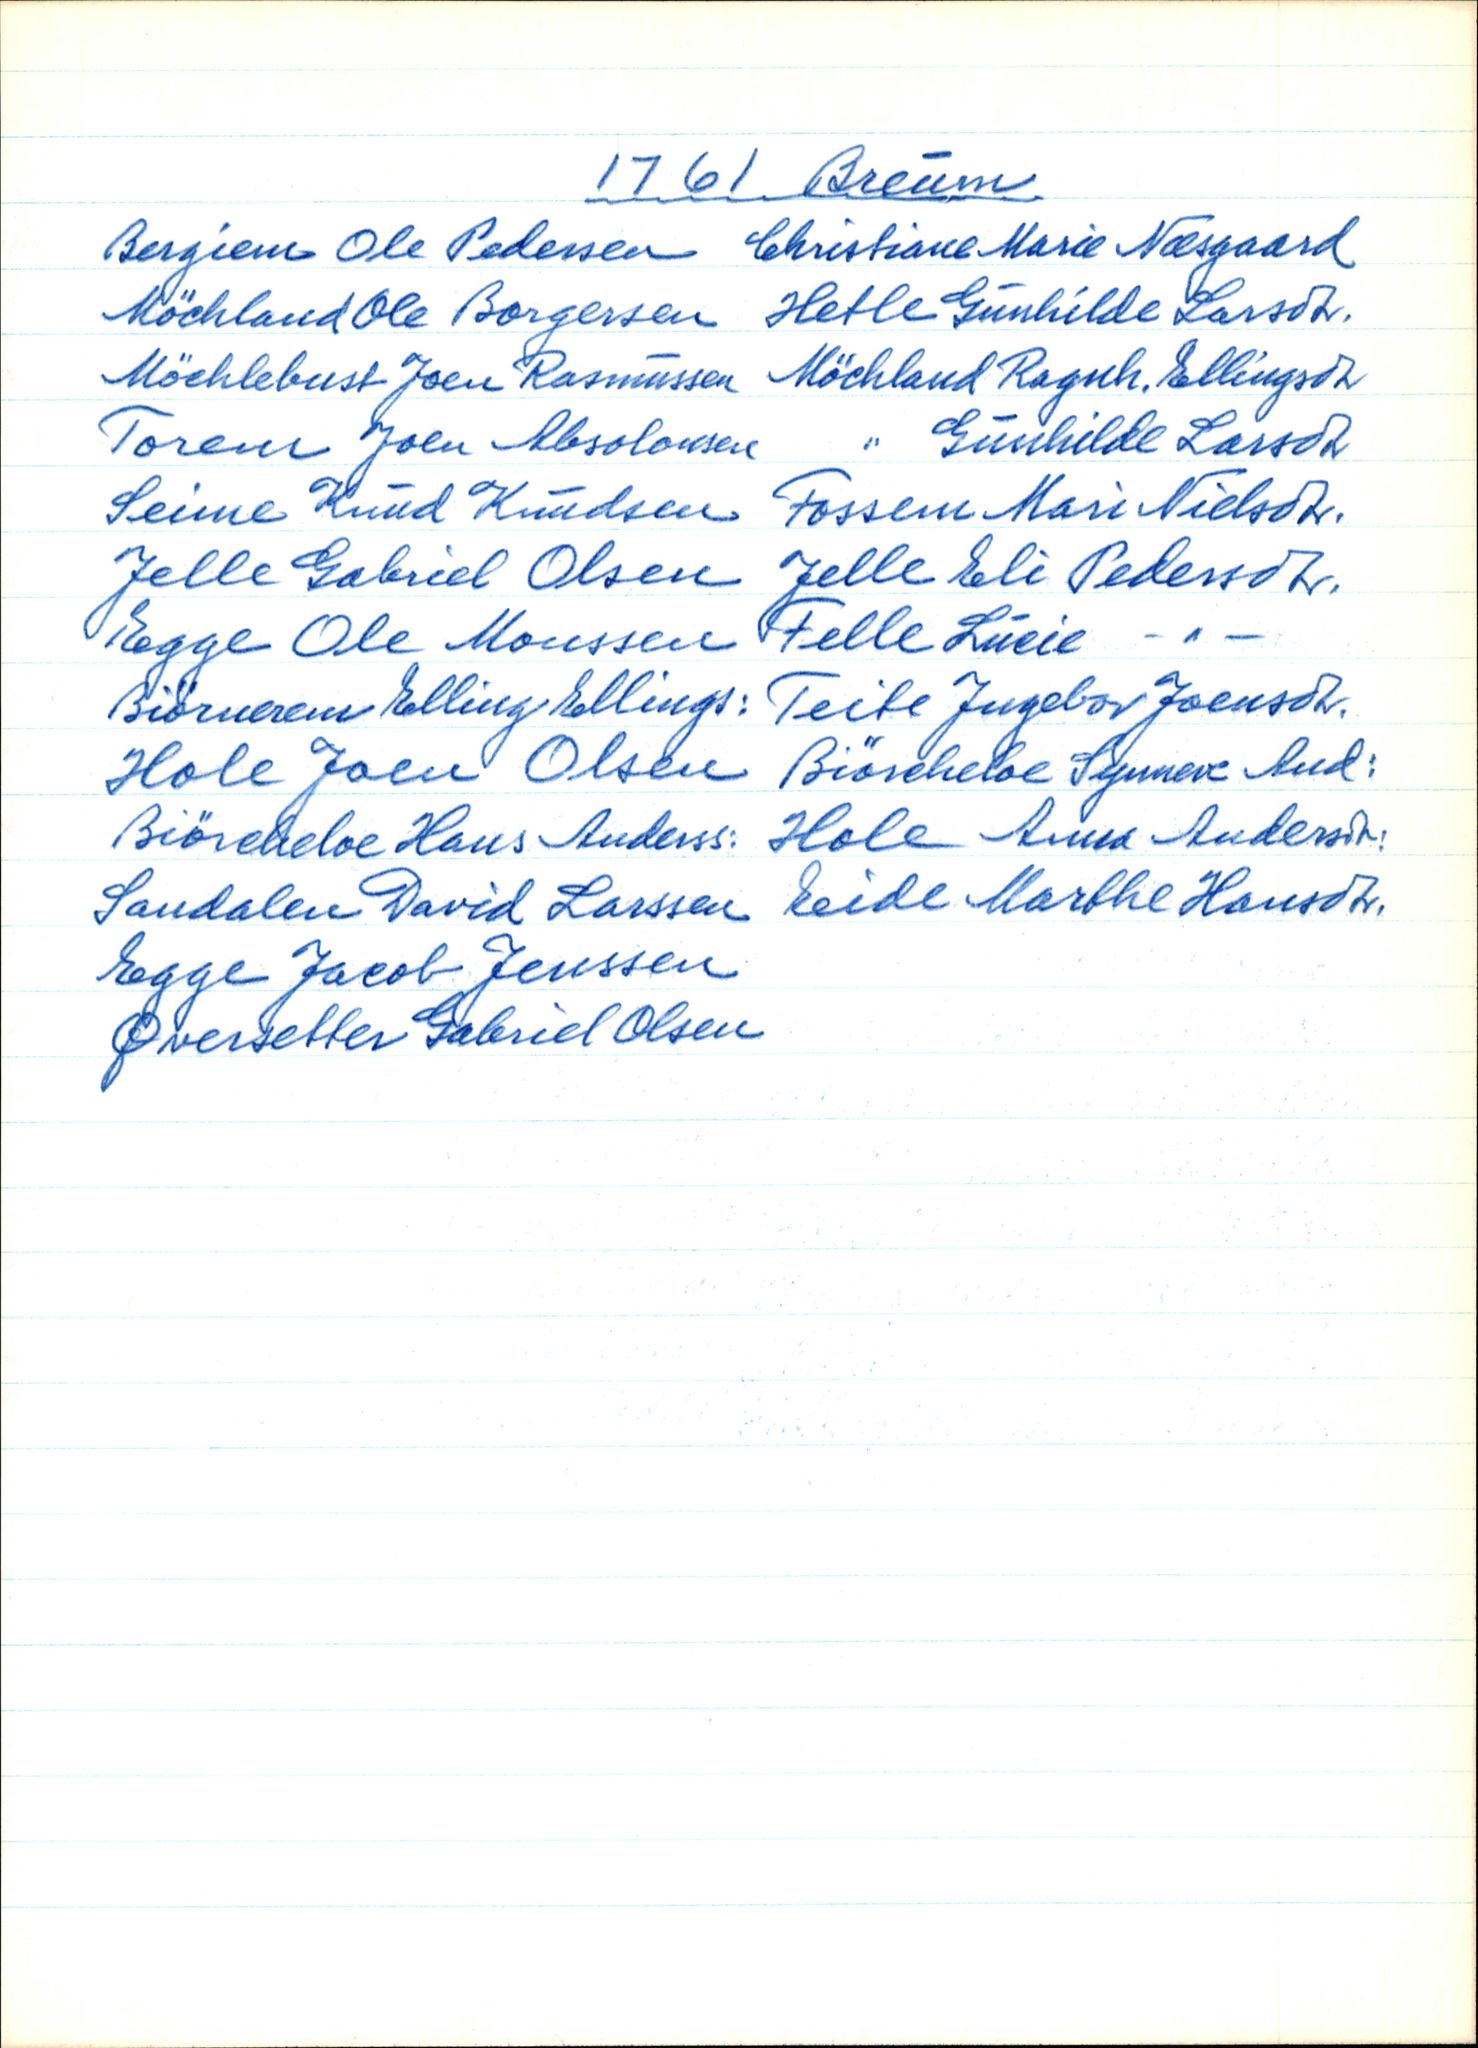 1761 Breum
Bergiem Ole Pedersen Christiane Marie Næsgaard
Möchland Ole Borgersen Hetle Gunhilde Larsdtr.
Möchlebust Joen Rasmussen Möchland Ragnh. Ellingsdtr
Torem Joen Absolonsen " Gunhilde Larsdtr
Seime Knud Knudsen Fossem Mari Nielsdtr.
Jelle Gabriel Olsen Jelle Eli Pedersdtr.
Egge Ole Monssen Felle Lucie - " -
Biörnerem Elling Ellings: Teite Ingebor Joensdtr.
Hole Joen Olsen Biörcheloe Synneve And:
Biörcheloe Hans Anderss: Hole Anna Andersdtr:
Sandalen David Larssen Eide Marthe Hansdtr.
Egge Jacob Jenssen
Qversetter Gabriel Olsen